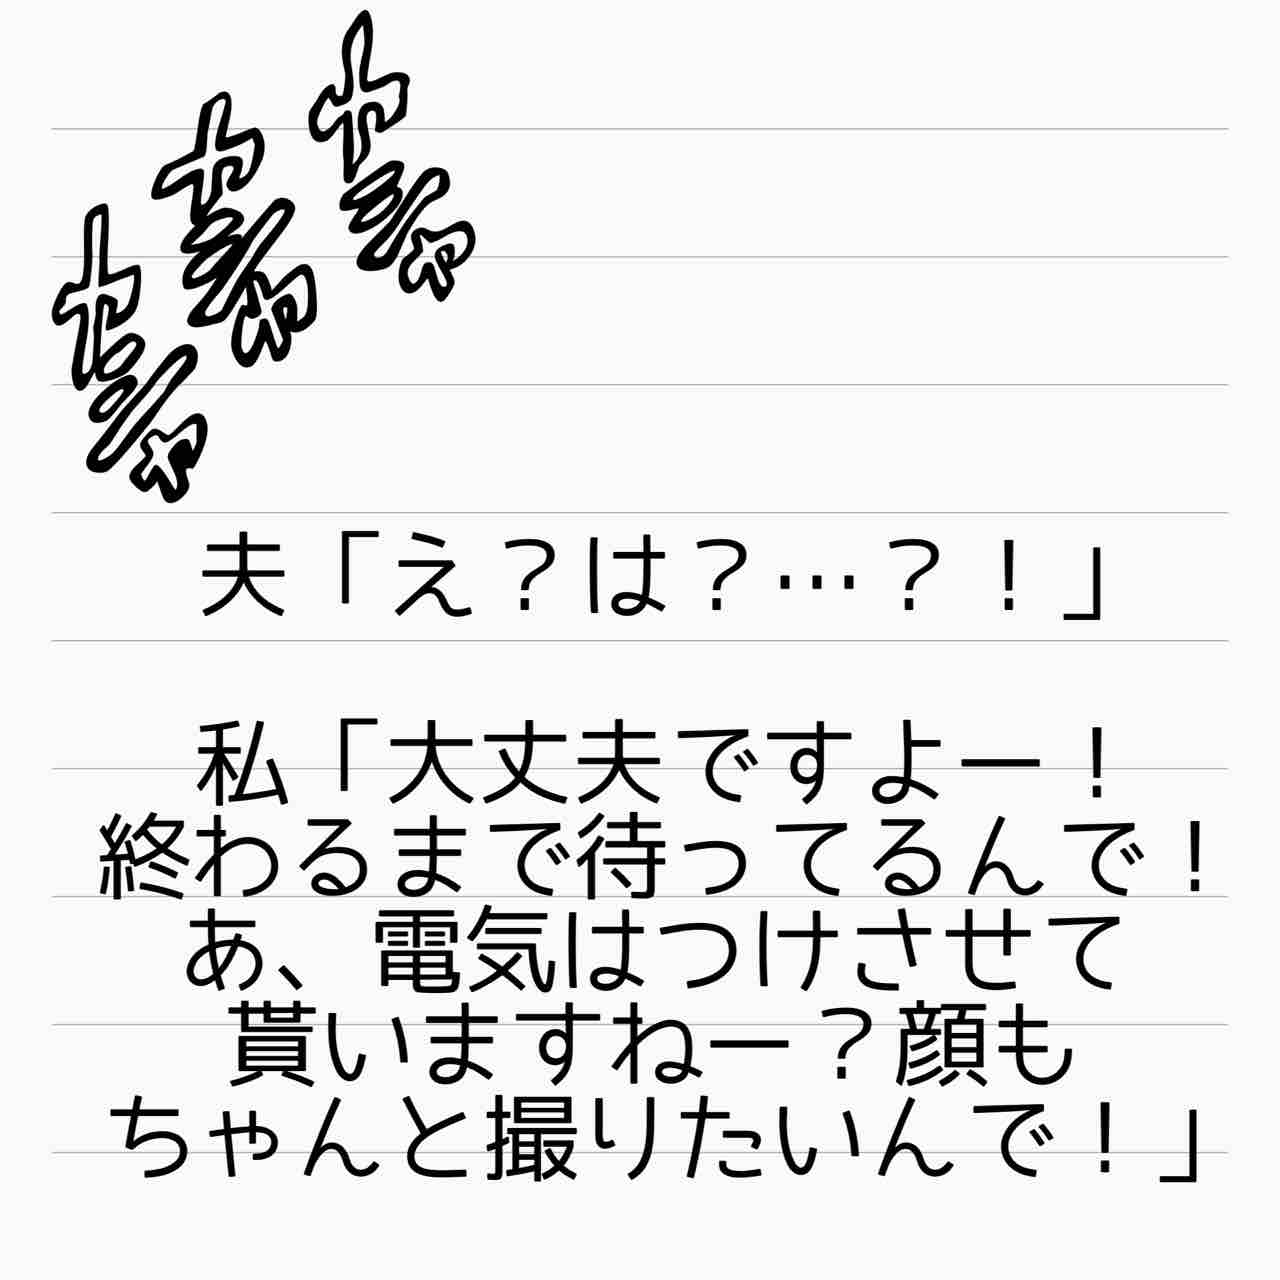 カシャ
カシャ
カシャ
夫「え？は？…？！」
私「大丈夫ですよー！
終わるまで待ってるんで！
あ、電気はつけさせて
貰いますねー？顔も
ちゃんと撮りたいんで！」